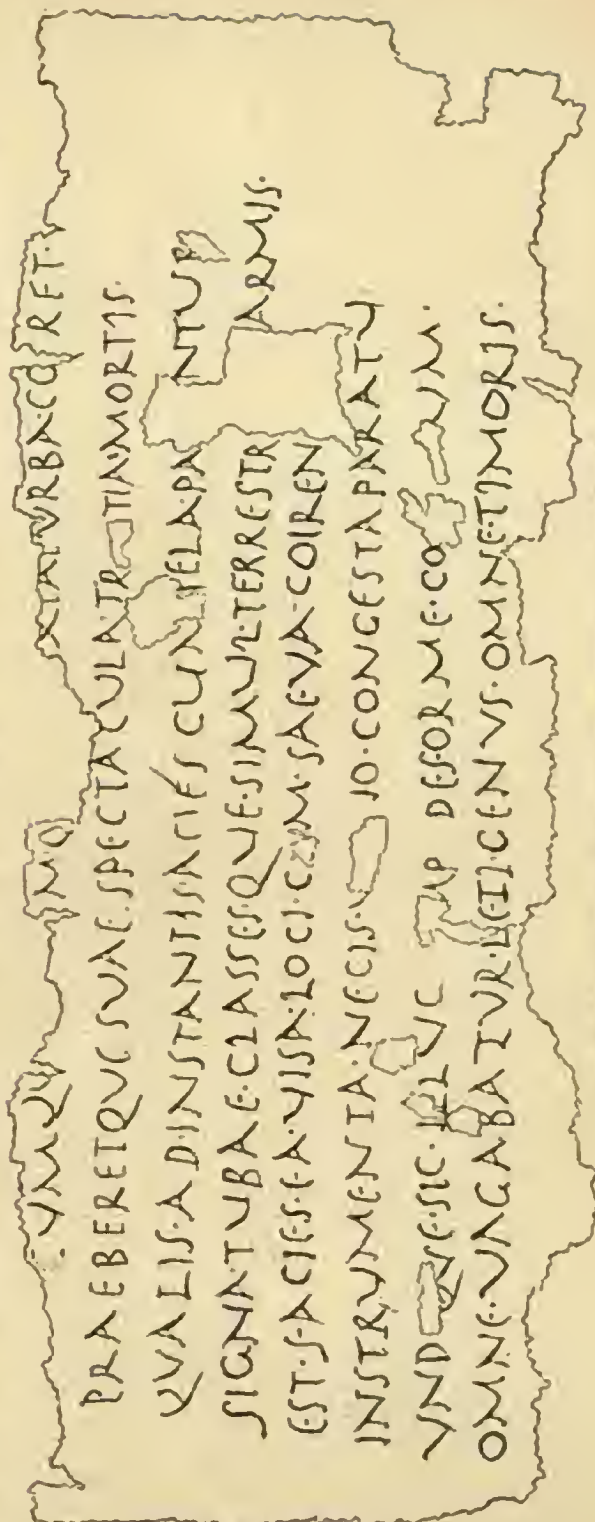 VMQV MQ ATATVRBA·COIRET·
PRAEBERETQVE SVAE·SPECTACVLA·TR TIA·MORTIS·
QVALIS·AD·INSTANTIS·ACIÉS CVM TELA·PA NTVR
SIGNA TVBAE·CLASSESQVE·SIMVL·TERRESTR ARMIS·
EST·FACIES·EA·VISA·LOCI·CVM·SAEVA·COIREN
INSTRVMENTA·NECIS·V IO·CONGESTA PARATV
VND QVE·SIC·ILLVC AMP DEFORME·CO VM·
OMNE·VAGABATVR·LETI·GENVS·OMNE·TIMORIS·